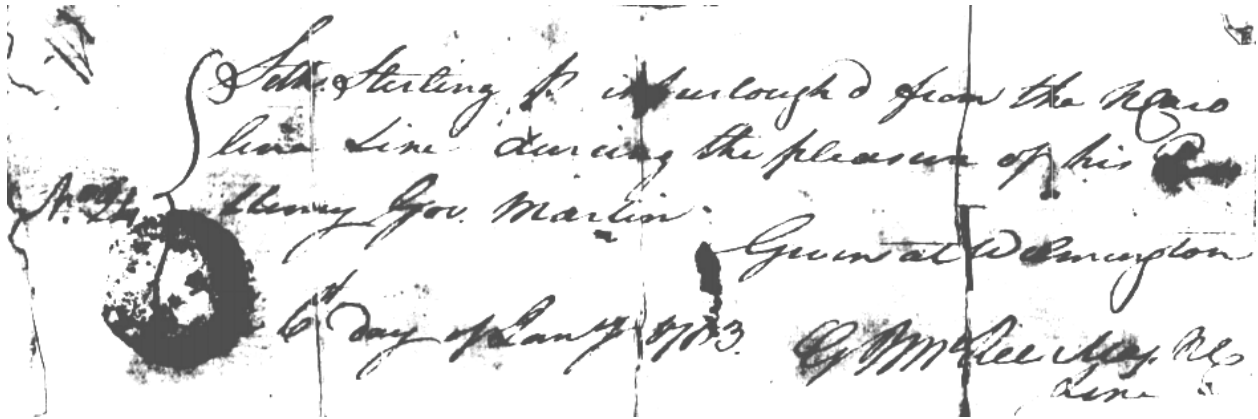 Seth Sterling is furlough'd from the N Caro
lina Line during the pleasure of his
No. 24 Henry Gov. Martin.
Given at Wilmington
6th day of Jany 1783.
Maj. N C
Line